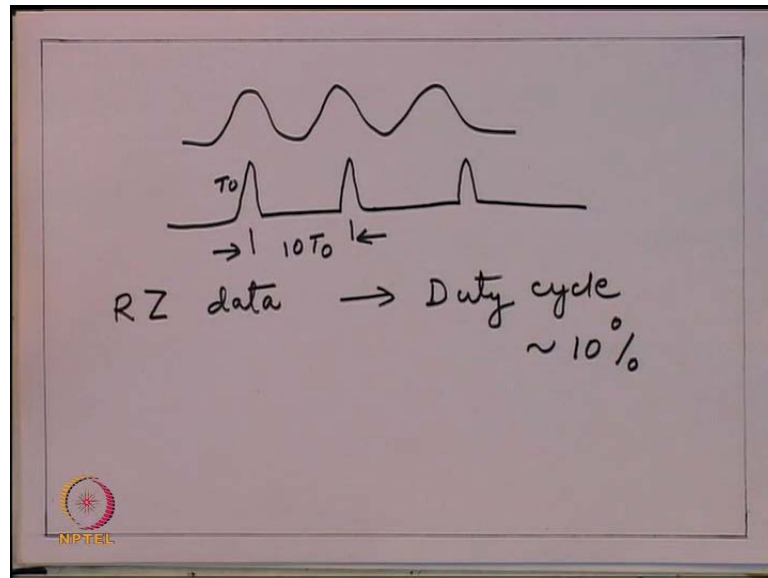 T0
10 T0
RZ data → Duty cycle
~ 10%
NPTEL